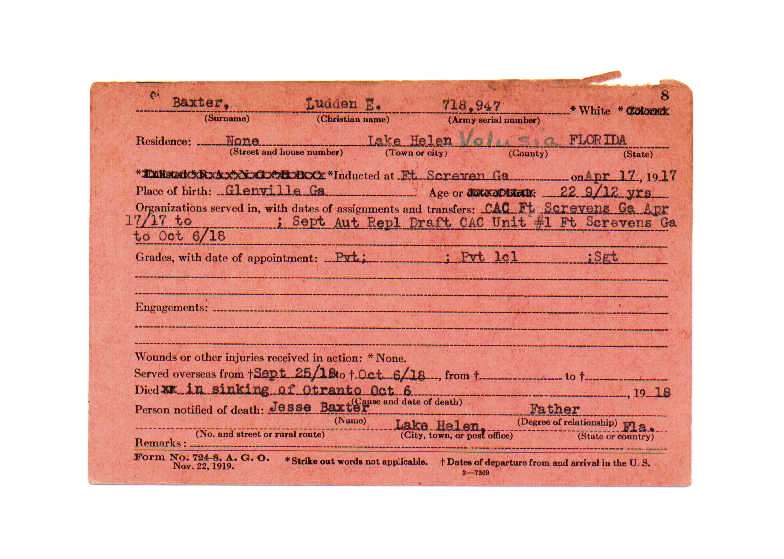 8
Baxter, Ludden E. 718,947 * White * Colored
(Surname) (Christian name) (Army serial number)
Residence: None Lake Helen Volusia FLORIDA
(Street and house number) (Town or city) (County) (State)
* *Inducted at Ft Screven Ga on Apr 17, 1917
Place of birth: Glenville Ga Age or 22 9/12 yrs
Organizations served in, with dates of assignments and transfers: CAC Ft Screvens Ga Apr
17/17 to ; Sept Aut Repl Draft CAC Unit #1 Ft Screvens Ga
to Oct 6/18
Grades, with date of appointment: Pvt; ; Pvt 1cl ;Sgt
Engagements:
Wounds or other injuries received in action: * None.
Served overseas from † Sept 25/18 to † Oct 6/18, from † to †
Died in sinking of Otranto Oct 6, 19 18
(Cause and date of death)
Person notified of death: Jesse Baxter Father
(Name) (Degree of relationship)
Lake Helen, Fla.
(No. and street or rural route) (City, town, or post office) (State or country)
Remarks:
Form No. 724-8, A. G. O. * Strike out words not applicable. † Dates of departure from and arrival in the U. S.
Nov. 22, 1919. 3—7369